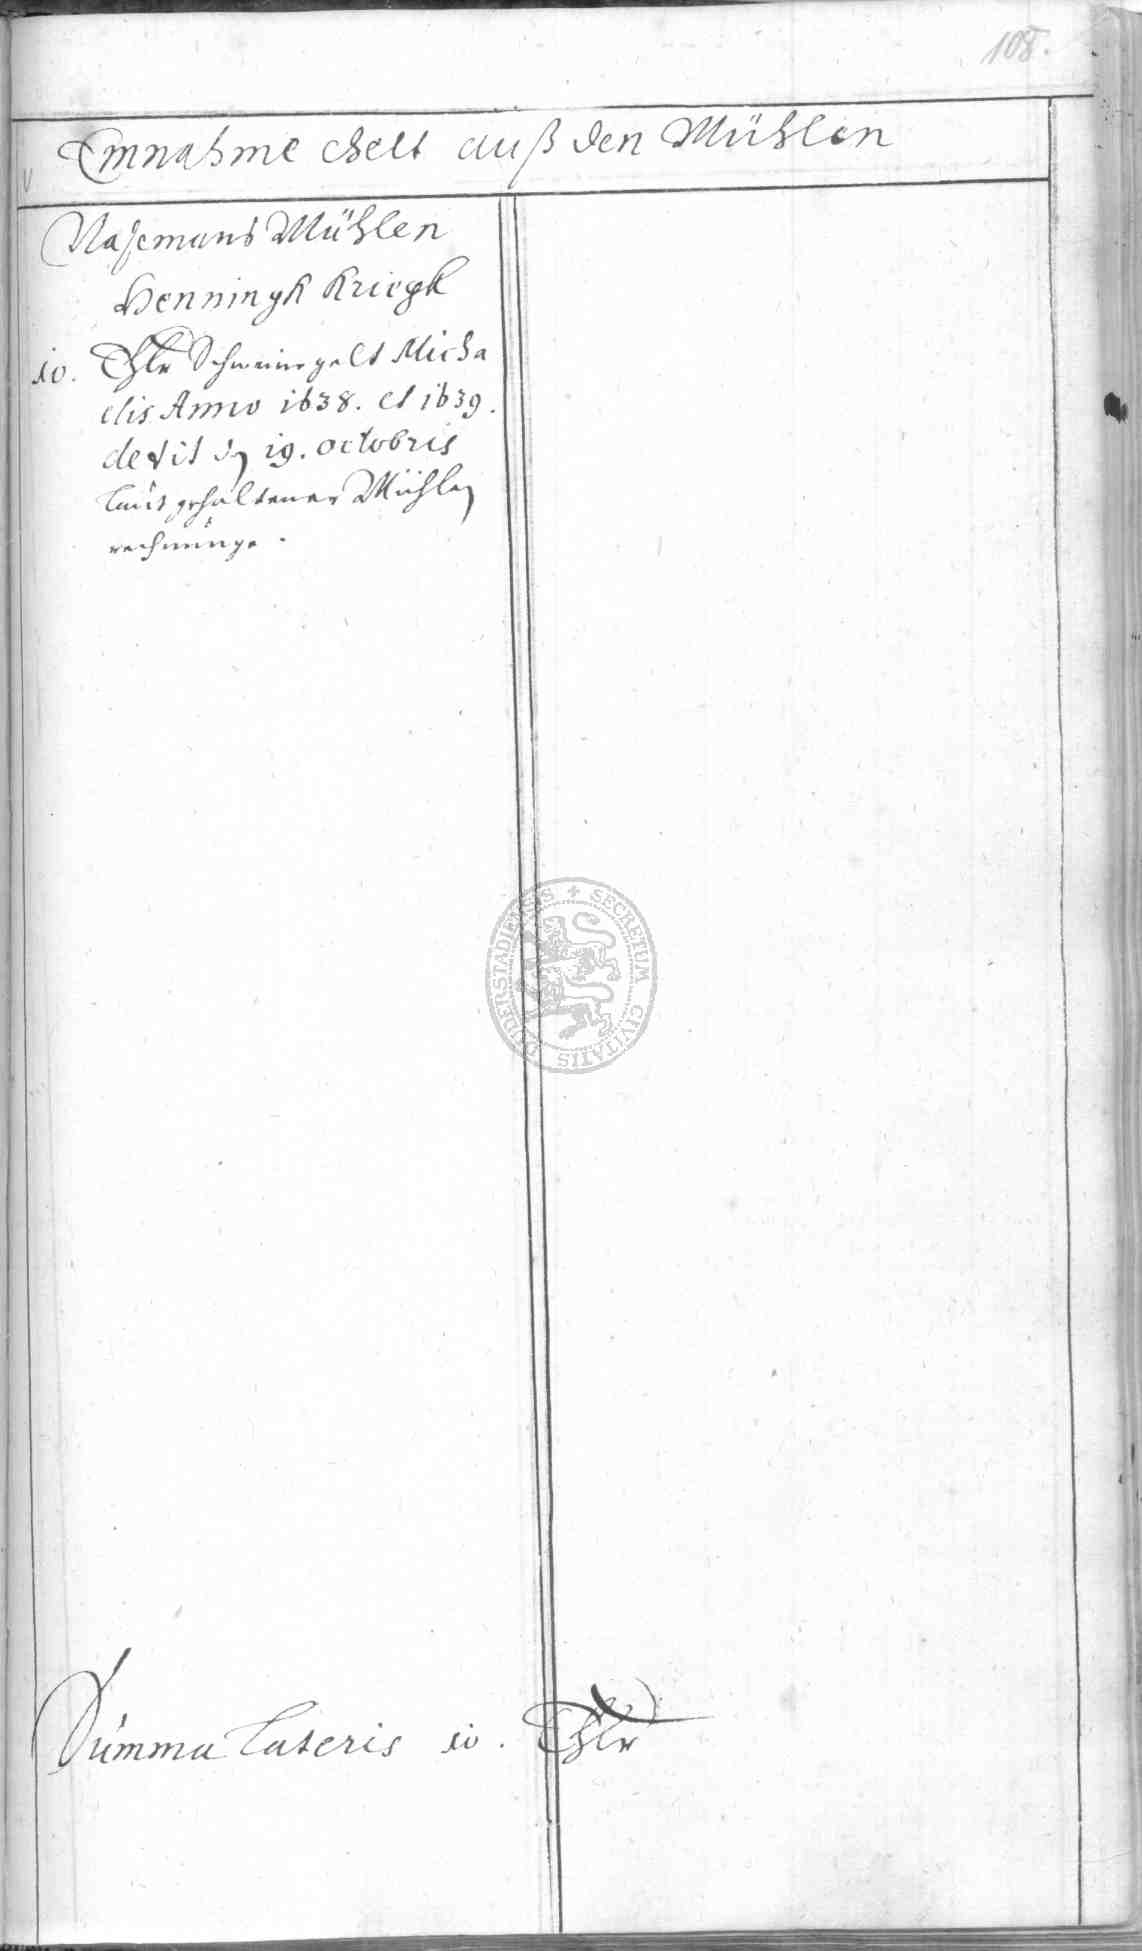 108.
Einnahme Gelt auß den Mühlen
Nasemans Mühlen
Henningk Kriegk
10. Thlr Schweinegelt Micha
elis Anno 1638. et 1639.
dedit den 19. octobris
laut gehaltener Mühlen
rechnunge.
Summa Lateris 10. Thlr
SECRETUM CIVITATIS DUDERSTADIENSIS